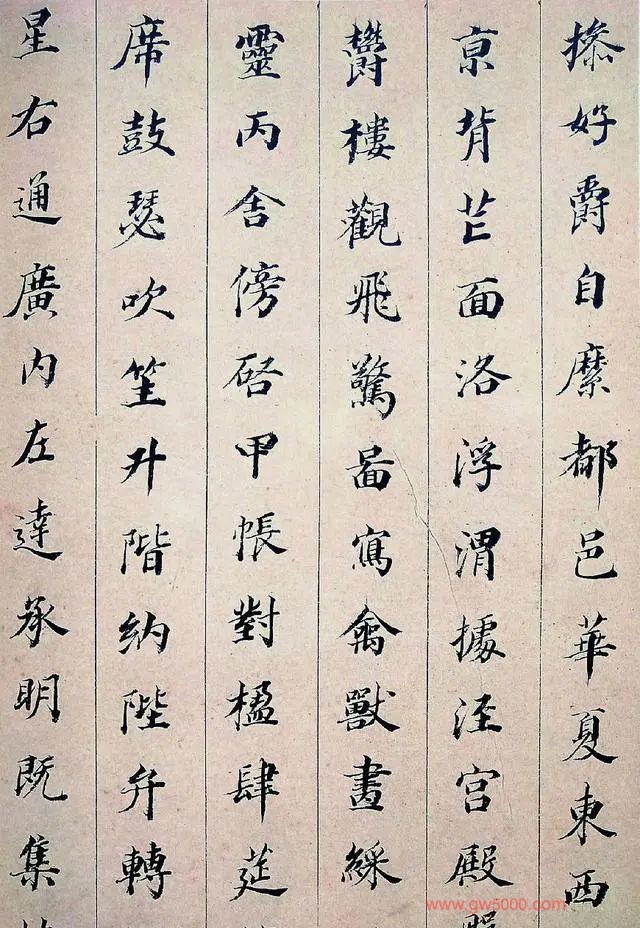 操好爵自縻都邑華夏東西
亰背芒面洛浮渭據涇宮殿
欝樓觀飛驚啚寫禽獸畫綵
靈丙舍傍啓甲帳對楹肆筵
席鼓瑟吹笙升階納陛弁轉
星右通廣內左達承明既集
www.gw5000.com